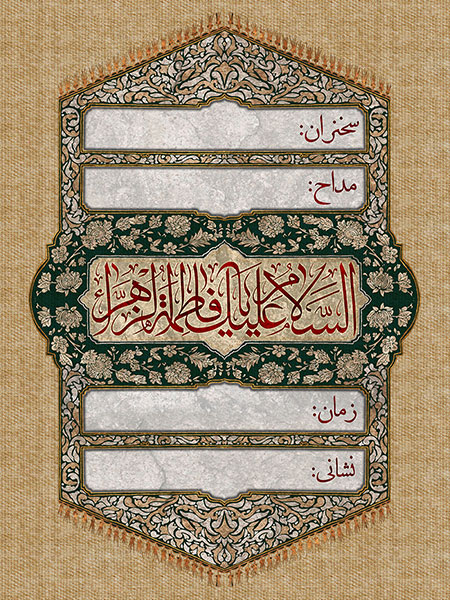 سخنران:
مداح:
السلام علیک یا فاطمة الزهراء
زمان:
نشانی: